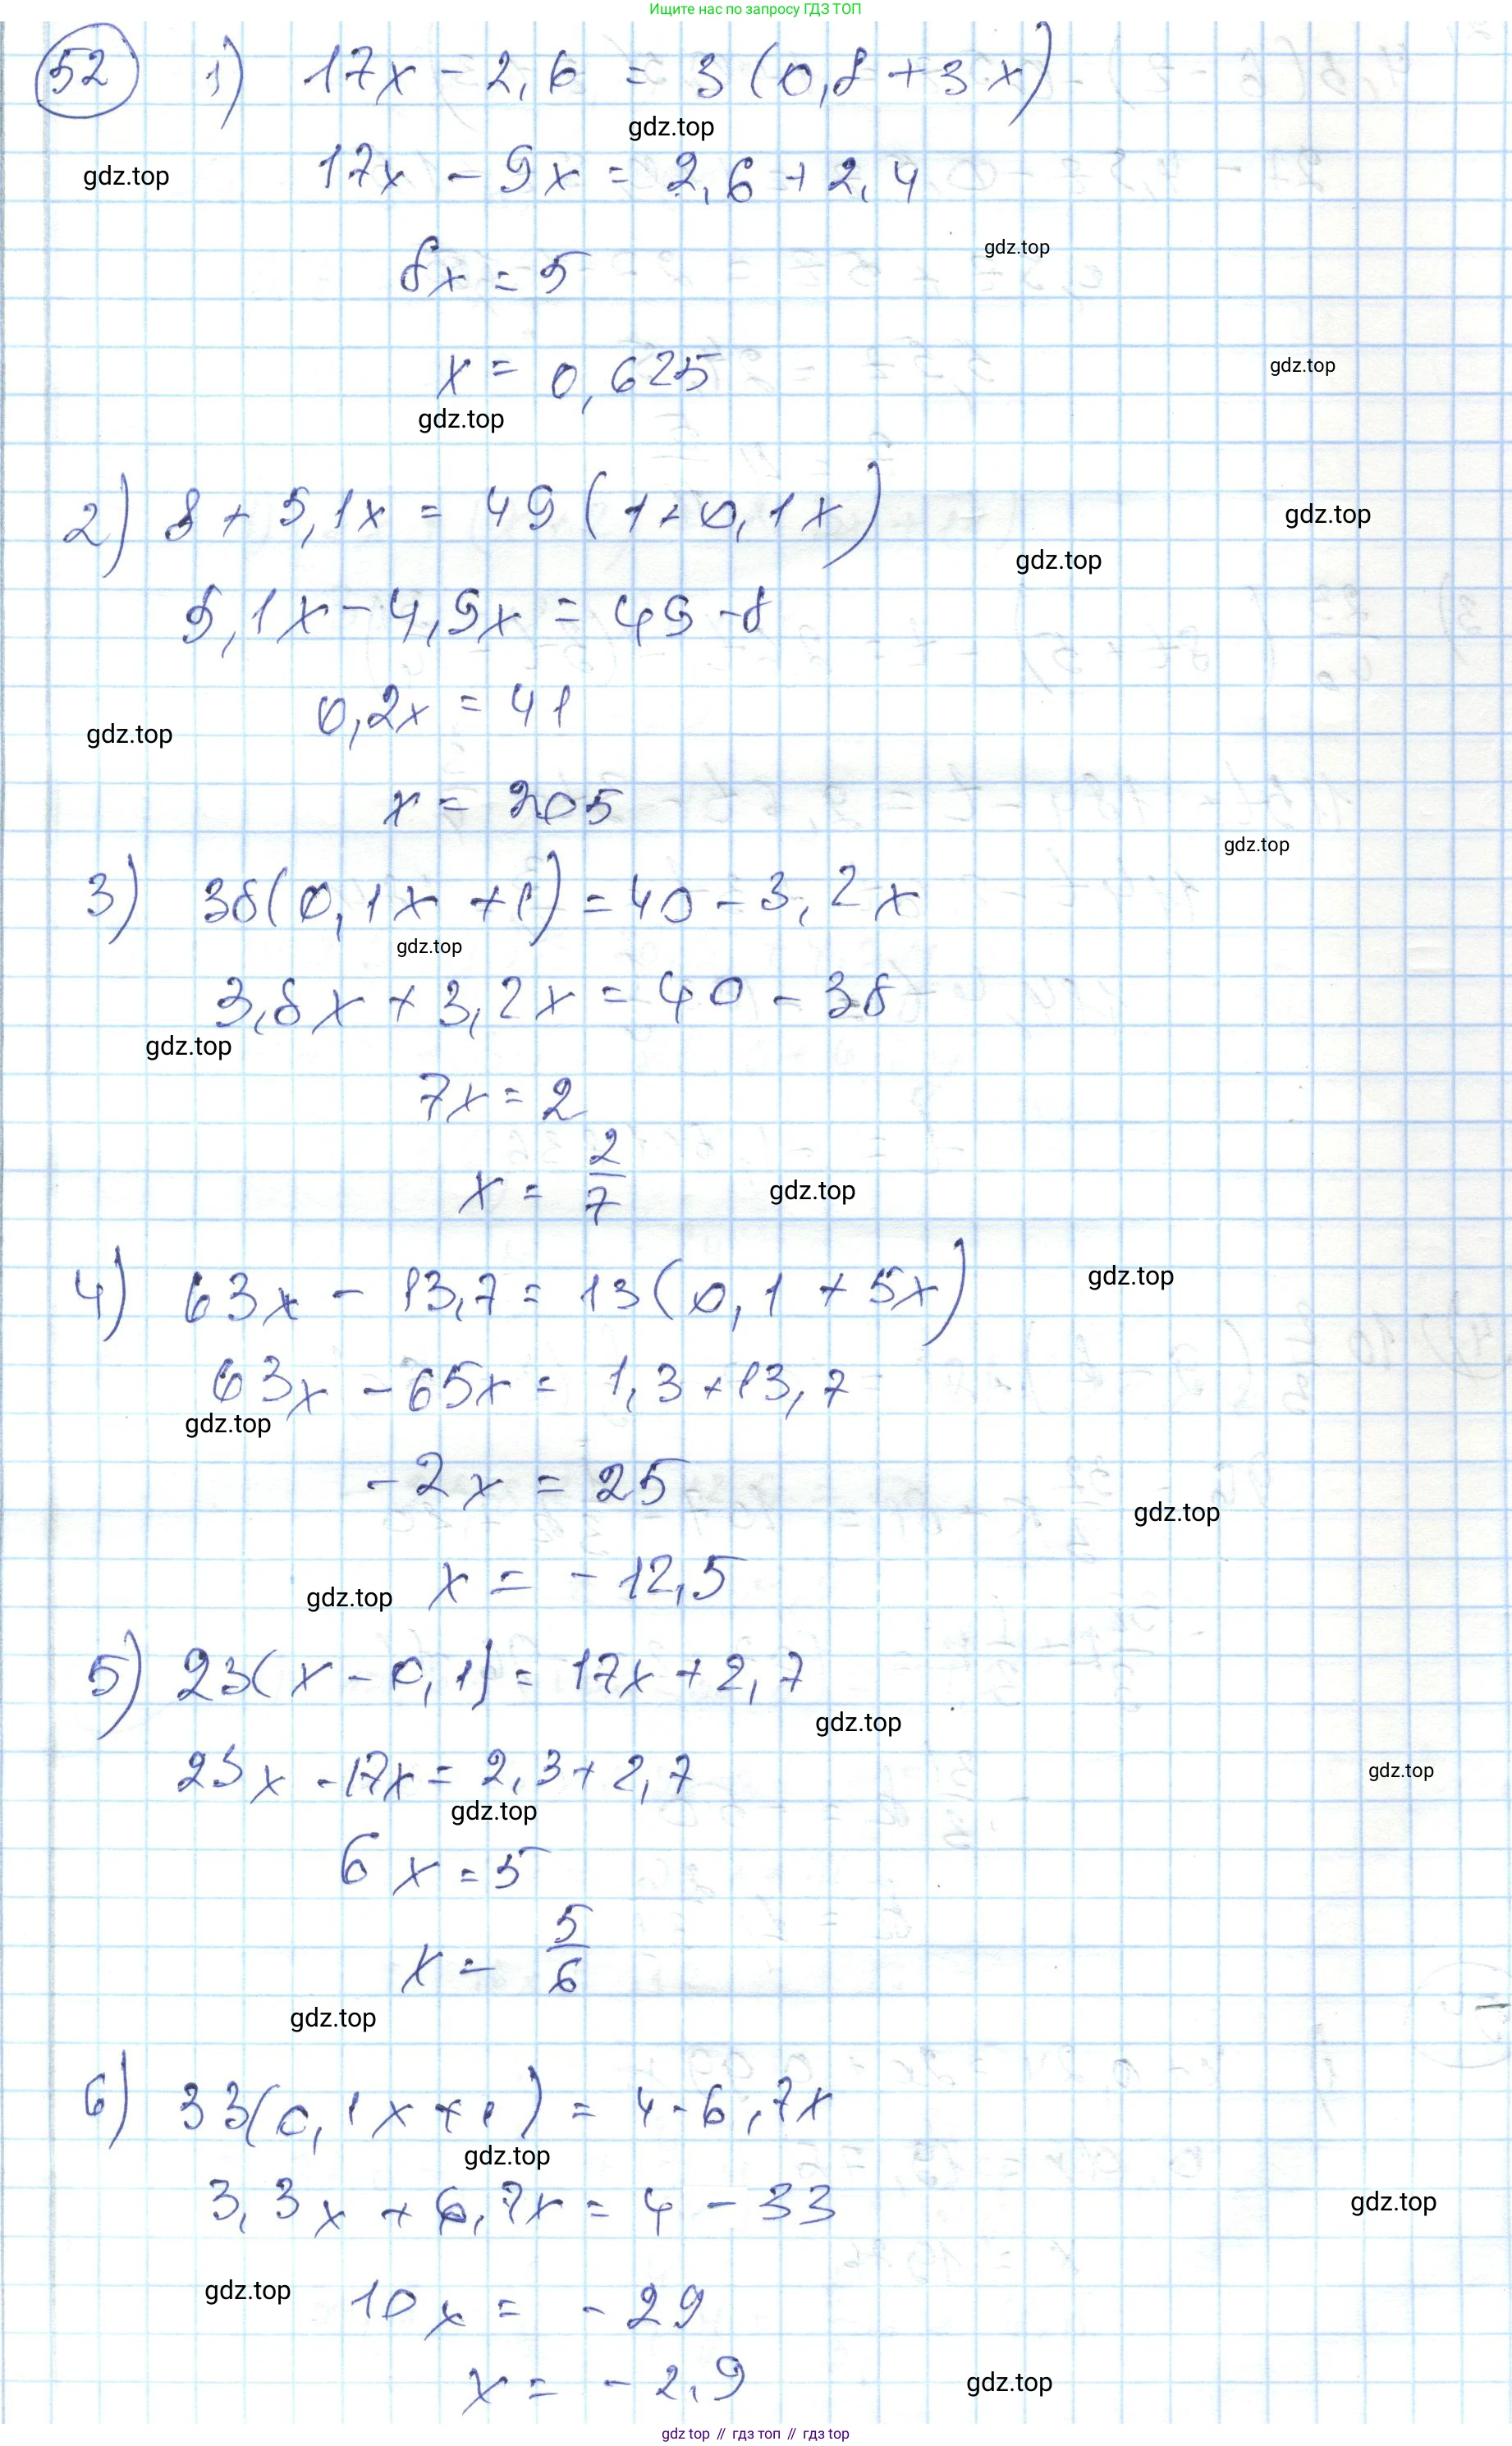 Ищите нас по запросу ГДЗ ТОП
52 1) 17x - 2,6 = 3(0,8 + 3x)
gdz.top
17x - 9x = 2,6 + 2,4
gdz.top
8x = 5
gdz.top
x = 0,625
gdz.top
gdz.top
2) 8 + 5,1x = 49(1 + 0,1x)
gdz.top
gdz.top
5,1x - 4,9x = 49 - 8
0,2x = 41
gdz.top
x = 205
gdz.top
3) 38(0,1x + 1) = 40 - 3,2x
gdz.top
3,8x + 3,2x = 40 - 38
gdz.top
7x = 2
x = 2/7
gdz.top
4) 63x - 13,7 = 13(0,1 + 5x)
gdz.top
63x - 65x = 1,3 + 13,7
gdz.top
-2x = 25
gdz.top
x = -12,5
gdz.top
5) 23(x - 0,1) = 17x + 2,7
gdz.top
23x - 17x = 2,3 + 2,7
gdz.top
gdz.top
6x = 5
x = 5/6
gdz.top
6) 33(0,1x + 1) = 4 - 6,7x
gdz.top
3,3x + 6,7x = 4 - 33
gdz.top
10x = -29
gdz.top
x = -2,9
gdz.top
gdz.top // гдз топ // гдз top